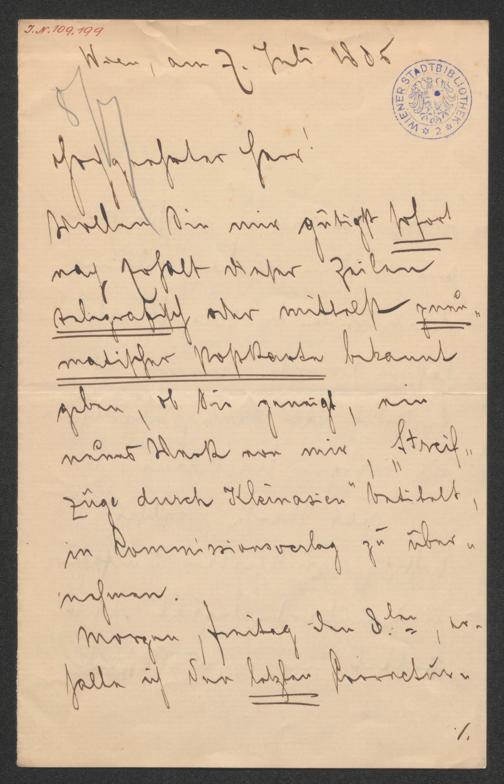 I.N. 109.199
Wien, am 7. Juli 1886
WIENER STADTBIBLIOTHEK 2
8/7
Hochgeehrter Herr!
Wollen Sie mir gütigst sofort
nach Erhalt dieser Zeilen
telegrafisch oder mittelst pneu„
matischer Postkarte bekannt
geben, ob Sie geneigt, ein
neues Werk von mir, „Streif„
züge durch Kleinasien" betitelt,
in Commissionsverlag zu über„
nehmen.
Morgen, Freitag den 8.ten, er„
halte ich den letzten Correctur„
/.